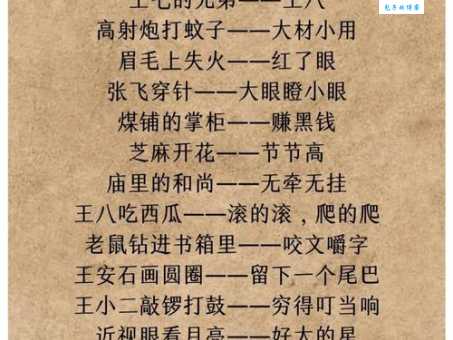 高射炮打蚊子——大材小用
眉毛上失火——红了眼
张飞穿针——大眼瞪小眼
煤铺的掌柜——赚黑钱
芝麻开花——节节高
庙里的和尚——无牵无挂
王八吃西瓜——滚的滚，爬的爬
老鼠钻进书箱里——咬文嚼字
王安石画圆圈——留下一个尾巴
王小二敲锣打鼓——穷得叮当响
近视眼看月亮——好大的星